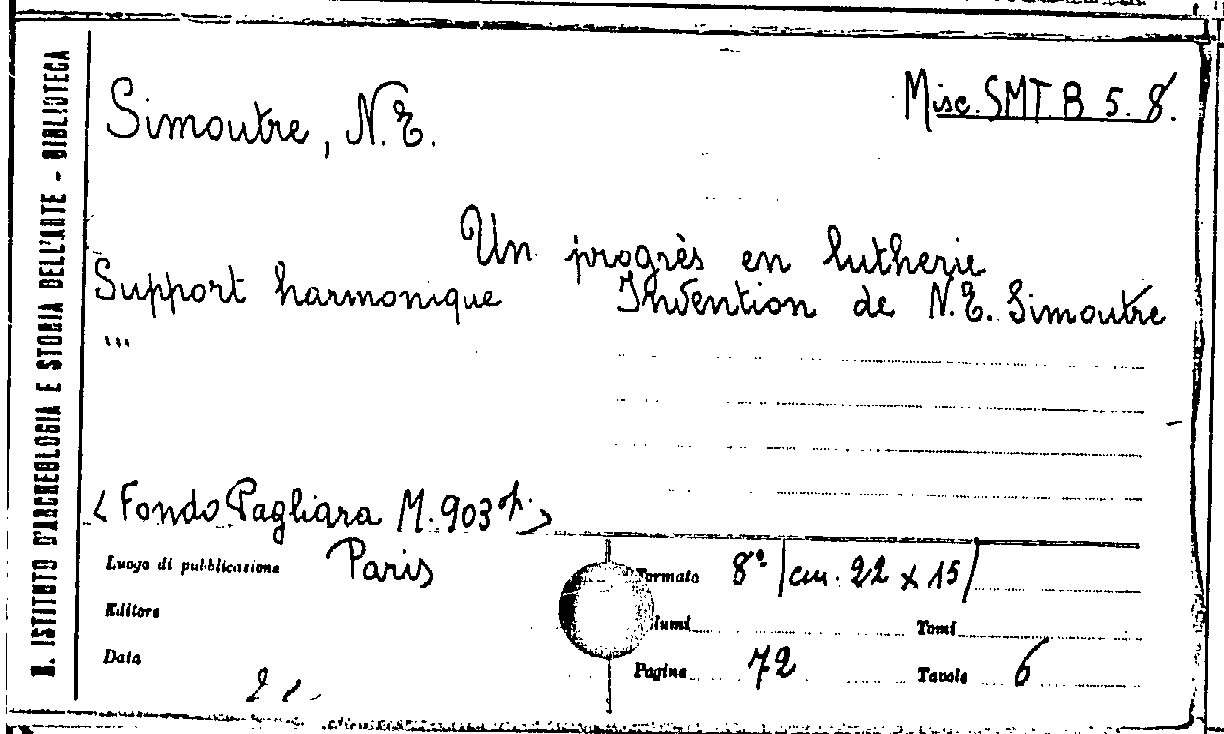 R. ISTITUTO D'ARCHEOLOGIA E STORIA DELL'ARTE - BIBLIOTECA
Simoutre, N.E.
Misc. SMT. B 5. 8.
Un progrès en lutherie
Support harmonique Invention de N.E. Simoutre
...
< Fondo Pagliara M. 903 >
Luogo di pubblicazione Paris
Formato 8° (cm. 22 x 15)
Editore
lumi Tomi
Data
Pagine 72 Tavole 6